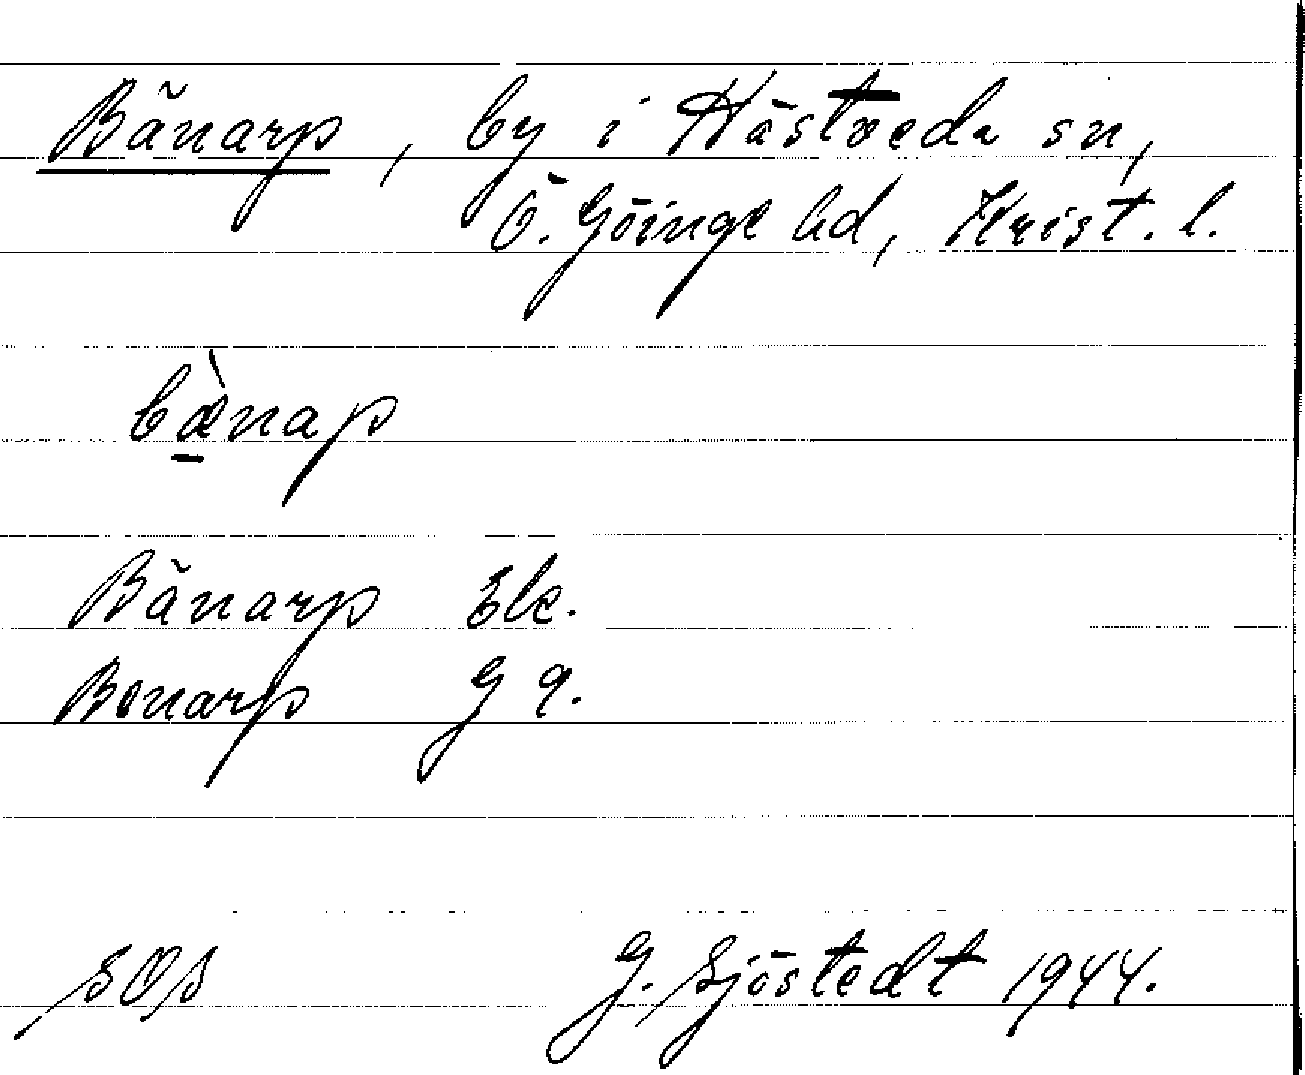 Bänarp, by i Hästveda sn,
Ö. Göinge hd, Krist. l.
bæ̀nap
Bänarp Ek.
Bonarp G 9.
SOS G. Sjöstedt 1944.